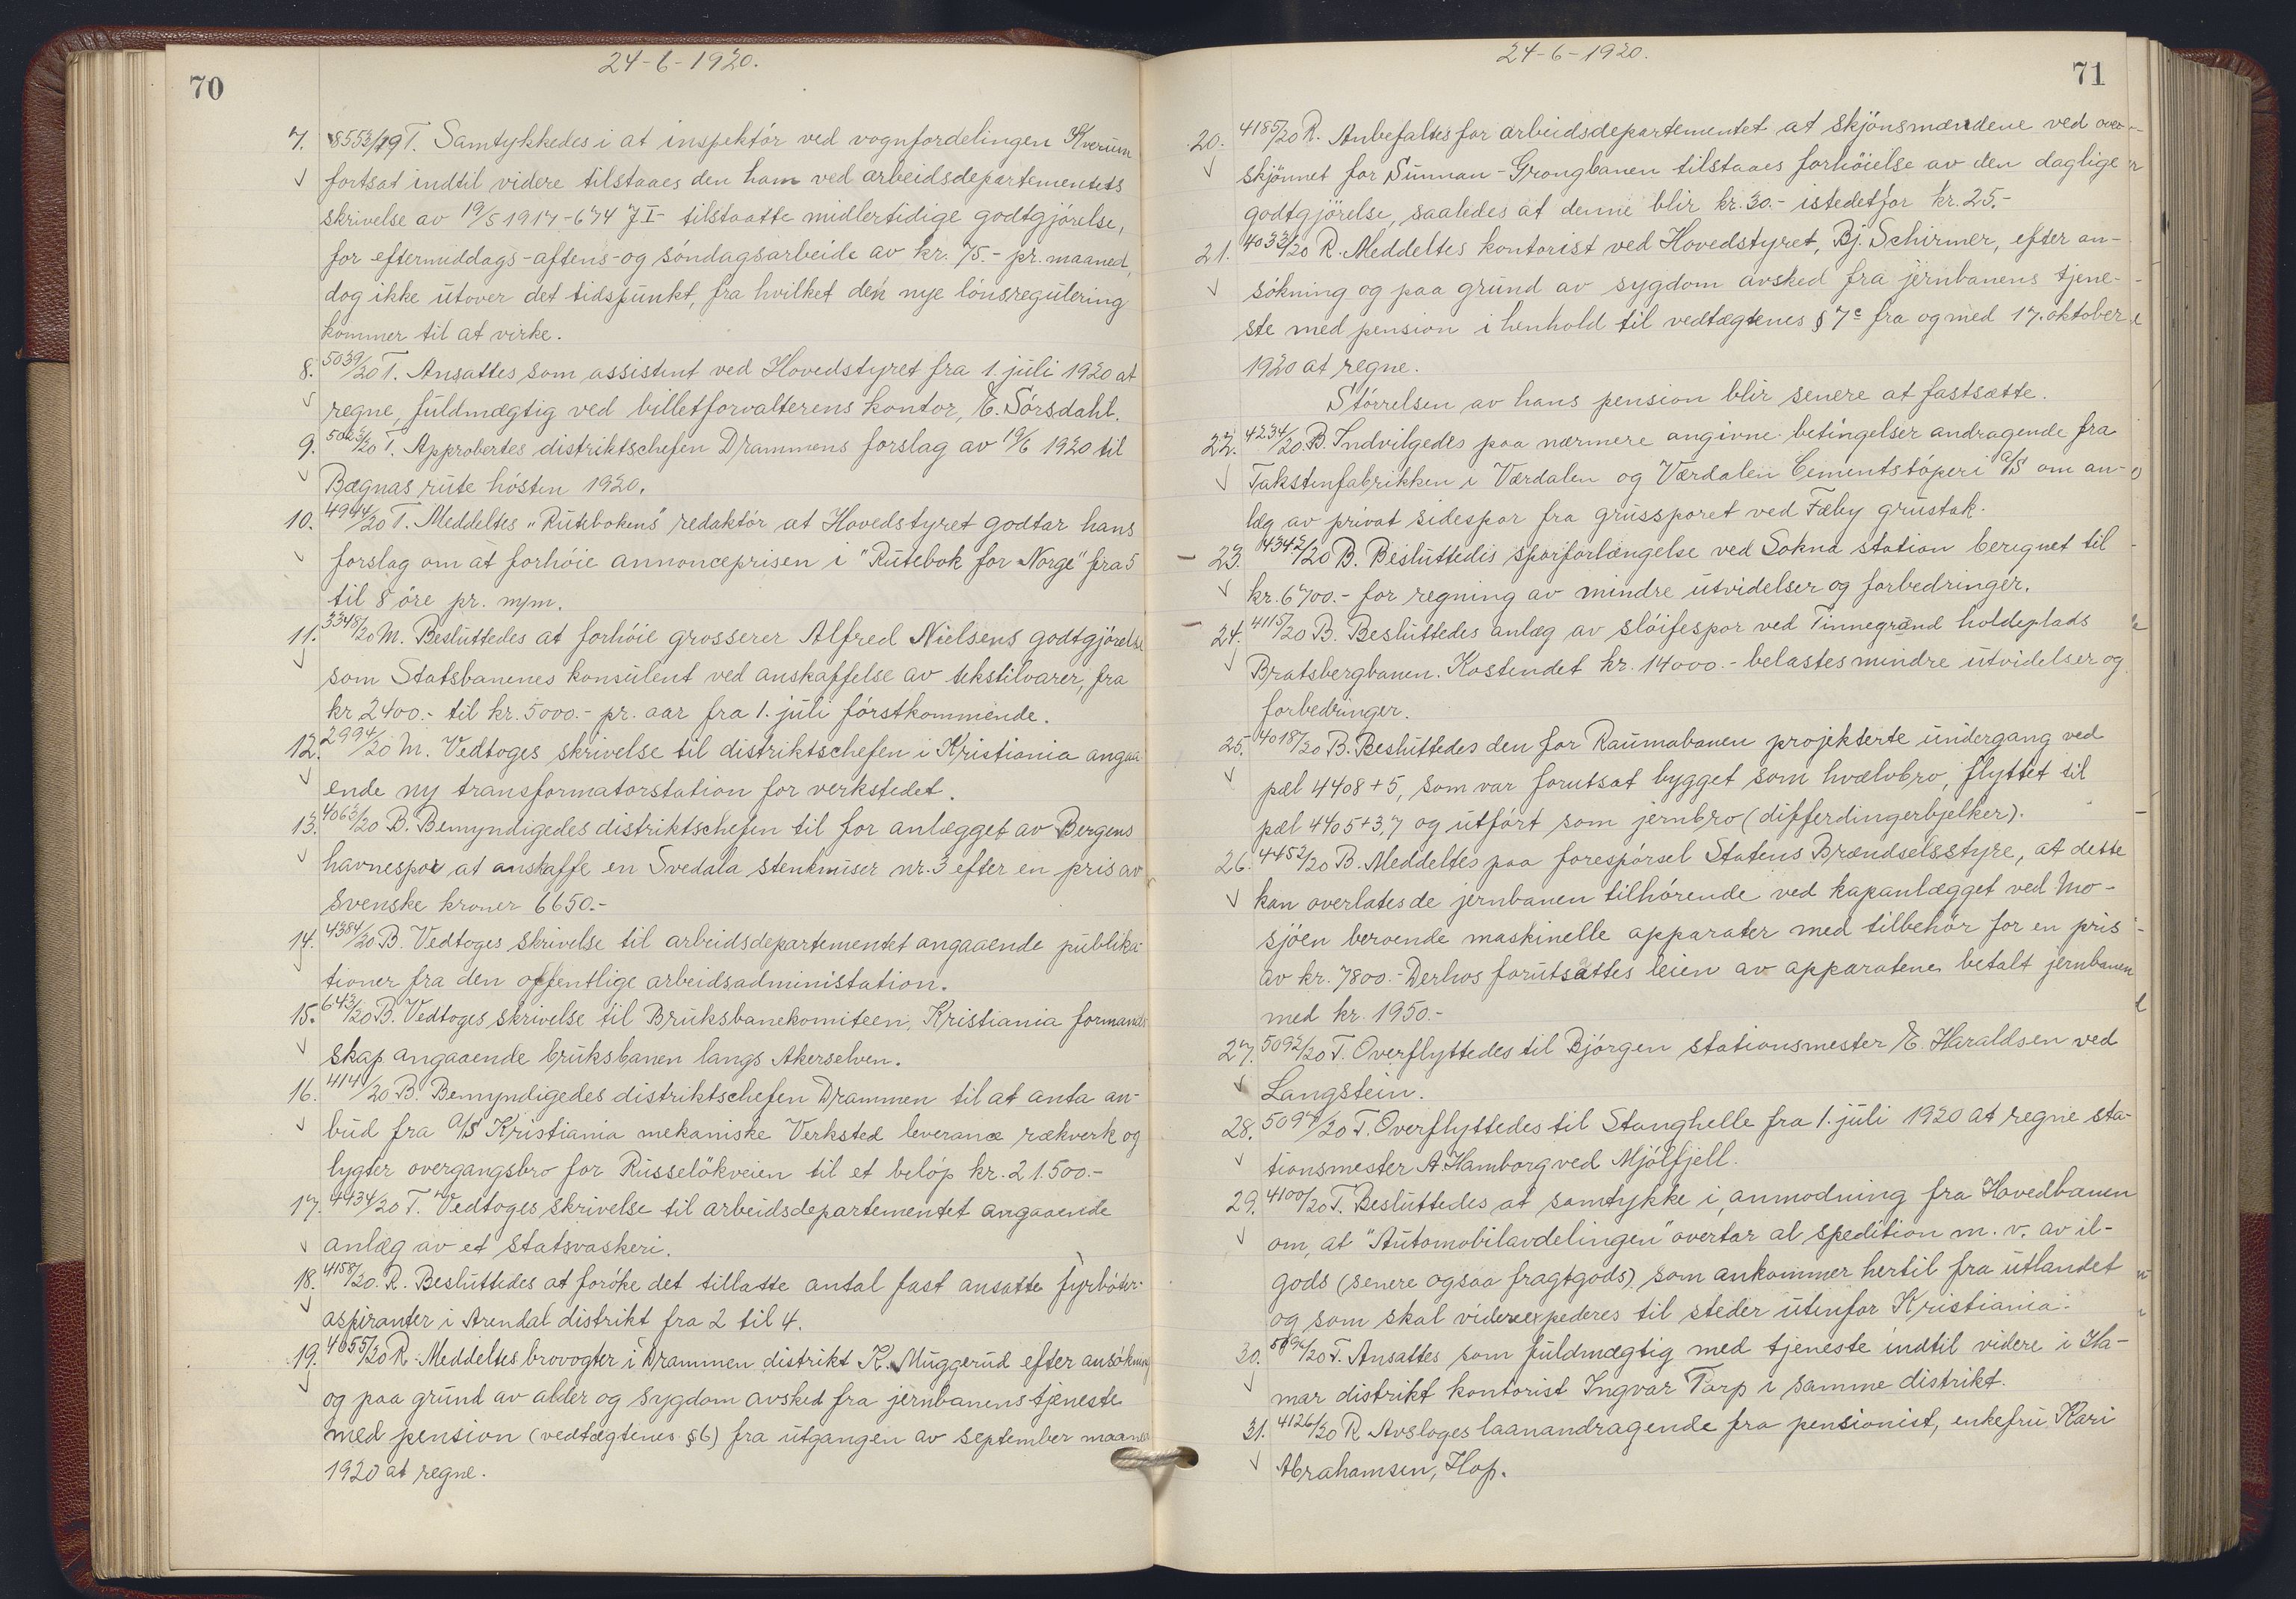 70
24-6-1920.
7. 8553/19 T. Samtykkedes i at inspektör ved vognfordelingen Kverum
fortsat indtil videre tilstaaes den ham ved arbeidsdepartementets
skrivelse av 19/5 1917-674 J I- tilstaatte midlertidige godtgjörelse,
for eftermiddags-aftens-og söndagsarbeide av kr. 75.- pr. maaned,
dog ikke utover det tidspunkt, fra hvilket den nye lönsregulering
kommer til at virke.
8. 5039/20 T. Ansattes som assistent ved Hovedstyret fra 1. juli 1920 at
regne, fuldmægtig ved billetforvalterens kontor, E. Sörsdahl.
9. 5023/20 T. Approbertes distriktschefen Drammens forslag av 19/6 1920 til
Bægnas rute hösten 1920.
10. 4944/20 T. Meddeltes "Rutebokens" redaktör at Hovedstyret godtar hans
forslag om at forhöie annonceprisen i "Rutebok for Norge" fra 5
til 8 öre pr. m/m.
11. 3348/20 M. Besluttedes at forhöie grosserer Alfred Nielsens godtgjörelse
som Statsbanenes konsulent ved anskaffelse av tekstilvarer, fra
kr 2400.- til kr. 5000.- pr. aar fra 1. juli förstkommende.
12. 2994/20 M. Vedtoges skrivelse til distriktschefen i Kristiania angaa-
ende ny transformatorstation for verkstedet.
13. 4063/20 B. Bemyndigedes distriktschefen til for anlægget av Bergens
havnespor at anskaffe en Svedala stenknuser nr. 3 efter en pris av
svenske kroner 6650.-
14. 4384/20 B. Vedtoges skrivelse til arbeidsdepartementet angaaende publika-
tioner fra den offentlige arbeidsadministation.
15. 643/20 B. Vedtoges skrivelse til Bruksbanekomiteen, Kristiania formand-
skap angaaende bruksbanen langs Akerselven.
16. 414/20 B. Bemyndigedes distriktschefen Drammen til at anta an-
bud fra A/S Kristiania mekaniske Verksted leverance rækverk og
lygter overgangsbro for Russelökveien til et belöp kr. 21.500.-
17. 4434/20 T. Vedtoges skrivelse til arbeidsdepartementet angaaende
anlæg av et statsvaskeri.
18. 4158/20. R. Besluttedes at foröke det tillatte antal fast ansatte fyrböter-
aspiranter i Arendal distrikt fra 2 til 4.
19. 4055/20 R. Meddeltes brovogter i Drammen distrikt K. Muggerud efter ansökning
og paa grund av alder og sygdom avsked fra jernbanens tjeneste
med pension (vedtægtenes §6) fra utgangen av september maaned
1920 at regne.
24-6-1920.
71
20. 4185/20 R. Anbefaltes for arbeidsdepartementet at skjönsmændene ved over-
skjönnet for Sunnan-Grongbanen tilstaaes forhöielse av den daglige
godtgjörelse, saaledes at denne blir kr. 30.- istedetfor kr. 25.-
21. 4033/20 R. Meddeltes kontorist ved Hovedstyret, Bj. Schirmer, efter an-
sökning og paa grund av sygdom avsked fra jernbanens tjene-
ste med pension i henhold til vedtægtenes § 7c fra og med 17. oktober
1920 at regne.
Störrelsen av hans pension blir senere at fastsætte.
22. 4234/20. B. Indvilgedes paa nærmere angivne betingelser andragende fra
Takstenfabrikken i Værdalen og Værdalen Cementstöperi A/S om an-
læg av privat sidespor fra grussporet ved Fæby grustak.
23. 4342/20 B. Besluttedes sporforlængelse ved Sokna station beregnet til
kr. 6700.- for regning av mindre utvidelser og forbedringer.
24. 4115/20 B. Besluttedes anlæg av slöifespor ved Tinnegrend holdeplads
Bratsbergbanen. Kostendet kr. 14000.- belastes mindre utvidelser og
forbedringer.
25. 4018/20 B. Besluttedes den for Raumabanen projekterte undergang ved
pæl 4408+5, som var forutsat bygget som hvælvbro, flyttet til
pæl 4405+3,7 og utfört som jernbro (differdingerbjelker).
26. 4452/20 B. Meddeltes paa forespörsel Statens Brændselsstyre, at dette
kan overlates de jernbanen tilhörende ved kapanlægget ved Mo-
sjöen beroende maskinelle apparater med tilbehör for en pris
av kr. 7800.- Derhos forutsattes leien av apparatene betalt jernbanen
med kr. 1950.-
27. 5092/20 T. Overflyttedes til Björgen stationsmester E. Haraldsen ved
Langstein.
28. 5097/20 T. Overflyttedes til Stanghelle fra 1. juli 1920 at regne sta-
tionsmester A Hamborg ved Mjölfjell.
29. 4100/20 T. Besluttedes at samtykke i, anmodning fra Hovedbanen
om, at "Automobilavdelingen" overtar al spedition m. v. av il-
gods (senere ogsaa fragtgods) som ankommer hertil fra utlandet
og som skal videreexpederes til steder utenfor Kristiania.
30. 5094/20 T. Ansattes som fuldmægtig med tjeneste indtil videre i Ha-
mar distrikt kontorist Ingvar Torp i samme distrikt.
31. 4126/20 R Avsloges laanandragende fra pensionist, enkefru Kari
Abrahamsen, Hop.